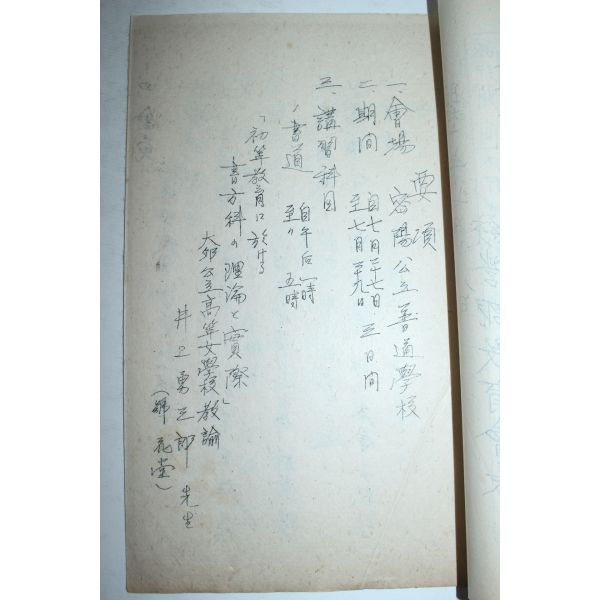 要項
一、會場 密陽公立普通學校
二、期間 自七月二十七日
至七月二十九日 三日間
三、講習科目
書道 自午后一時
至〃 五時
「初等教育に於ける
書方科の理論と實際」
大邱公立高等女學校教諭
井上勇三郎先生
(號 花堂)